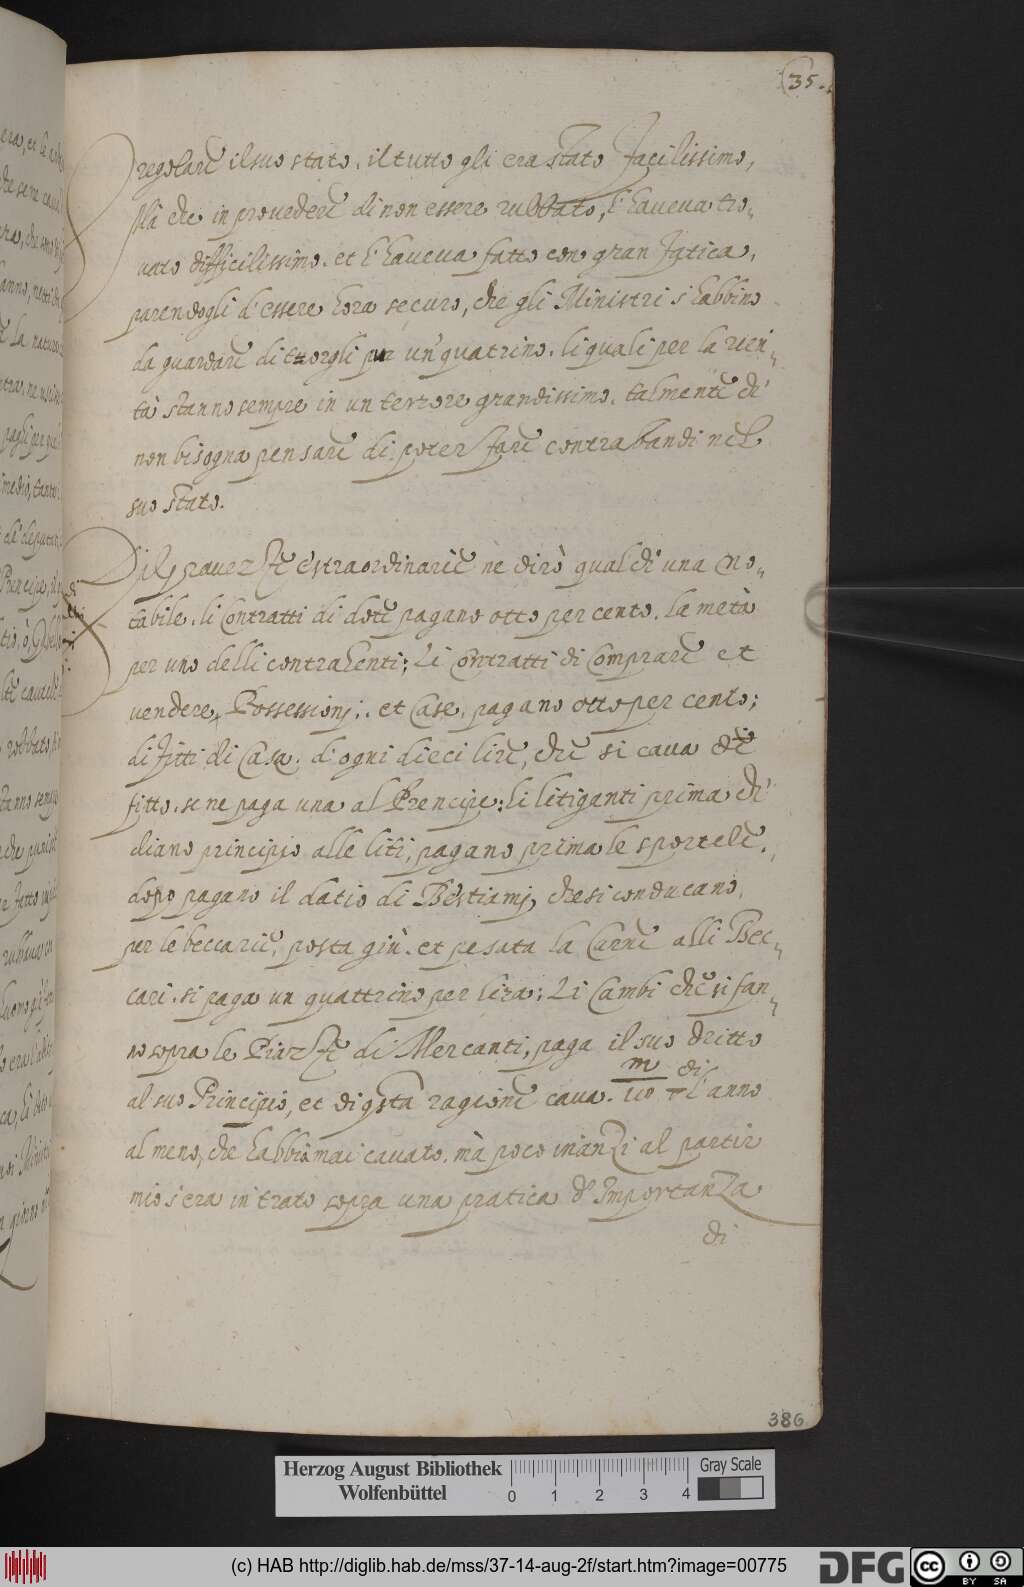 35.
regolare il suo stato. il tutto gli era stato facilissimo,
Mà che in provedere di non essere rubbato, l'haveva tro-
vato difficilissimo. et l'haveva fatto con gran fatica,
parendogli d'essere hora securo, che gli Ministri s'habbino
da guardare di torgli pur un quatrino. li quali per la veri-
tà stanno sempre in un terrore grandissimo. talmente che
non bisogna pensare di poter fare contrabandi nel
suo stato.
gravezze estraordinarie ne dirò qualch'una no-
tabile. li Contratti di dote pagano otto per cento. la metà
per uno delli contrahenti; Li Contratti di Comprare et
vendere Possessionj. et Case. pagano otto per cento;
di fitti di Casa. d'ogni dieci lire, che si cava de
fitto. se ne paga una al Prencipe; li litiganti prima ch'
diano principio alle liti, pagano prima le sportele.
dopo pagano il datio di Bestiamj, che si conducano
per le beccarie, posta giù. et pesata la Carne alli Bec-
cari. si paga un quattrino per lira; Li Cambi che si fan-
no sopra le Piazze di Mercanti, paga il suo dritto
al suo Principio, et di questa ragione cava. m/110 di l'anno
al meno, che habbia mai cavato. mà poco inanzi al partir
mio s'era intrato sopra una pratica d'Importanza
di
386
Herzog August Bibliothek
Wolfenbüttel
0 1 2 3 4
Gray Scale
(c) HAB http://diglib.hab.de/mss/37-14-aug-2f/start.htm?image=00775
DFG
cc BY SA